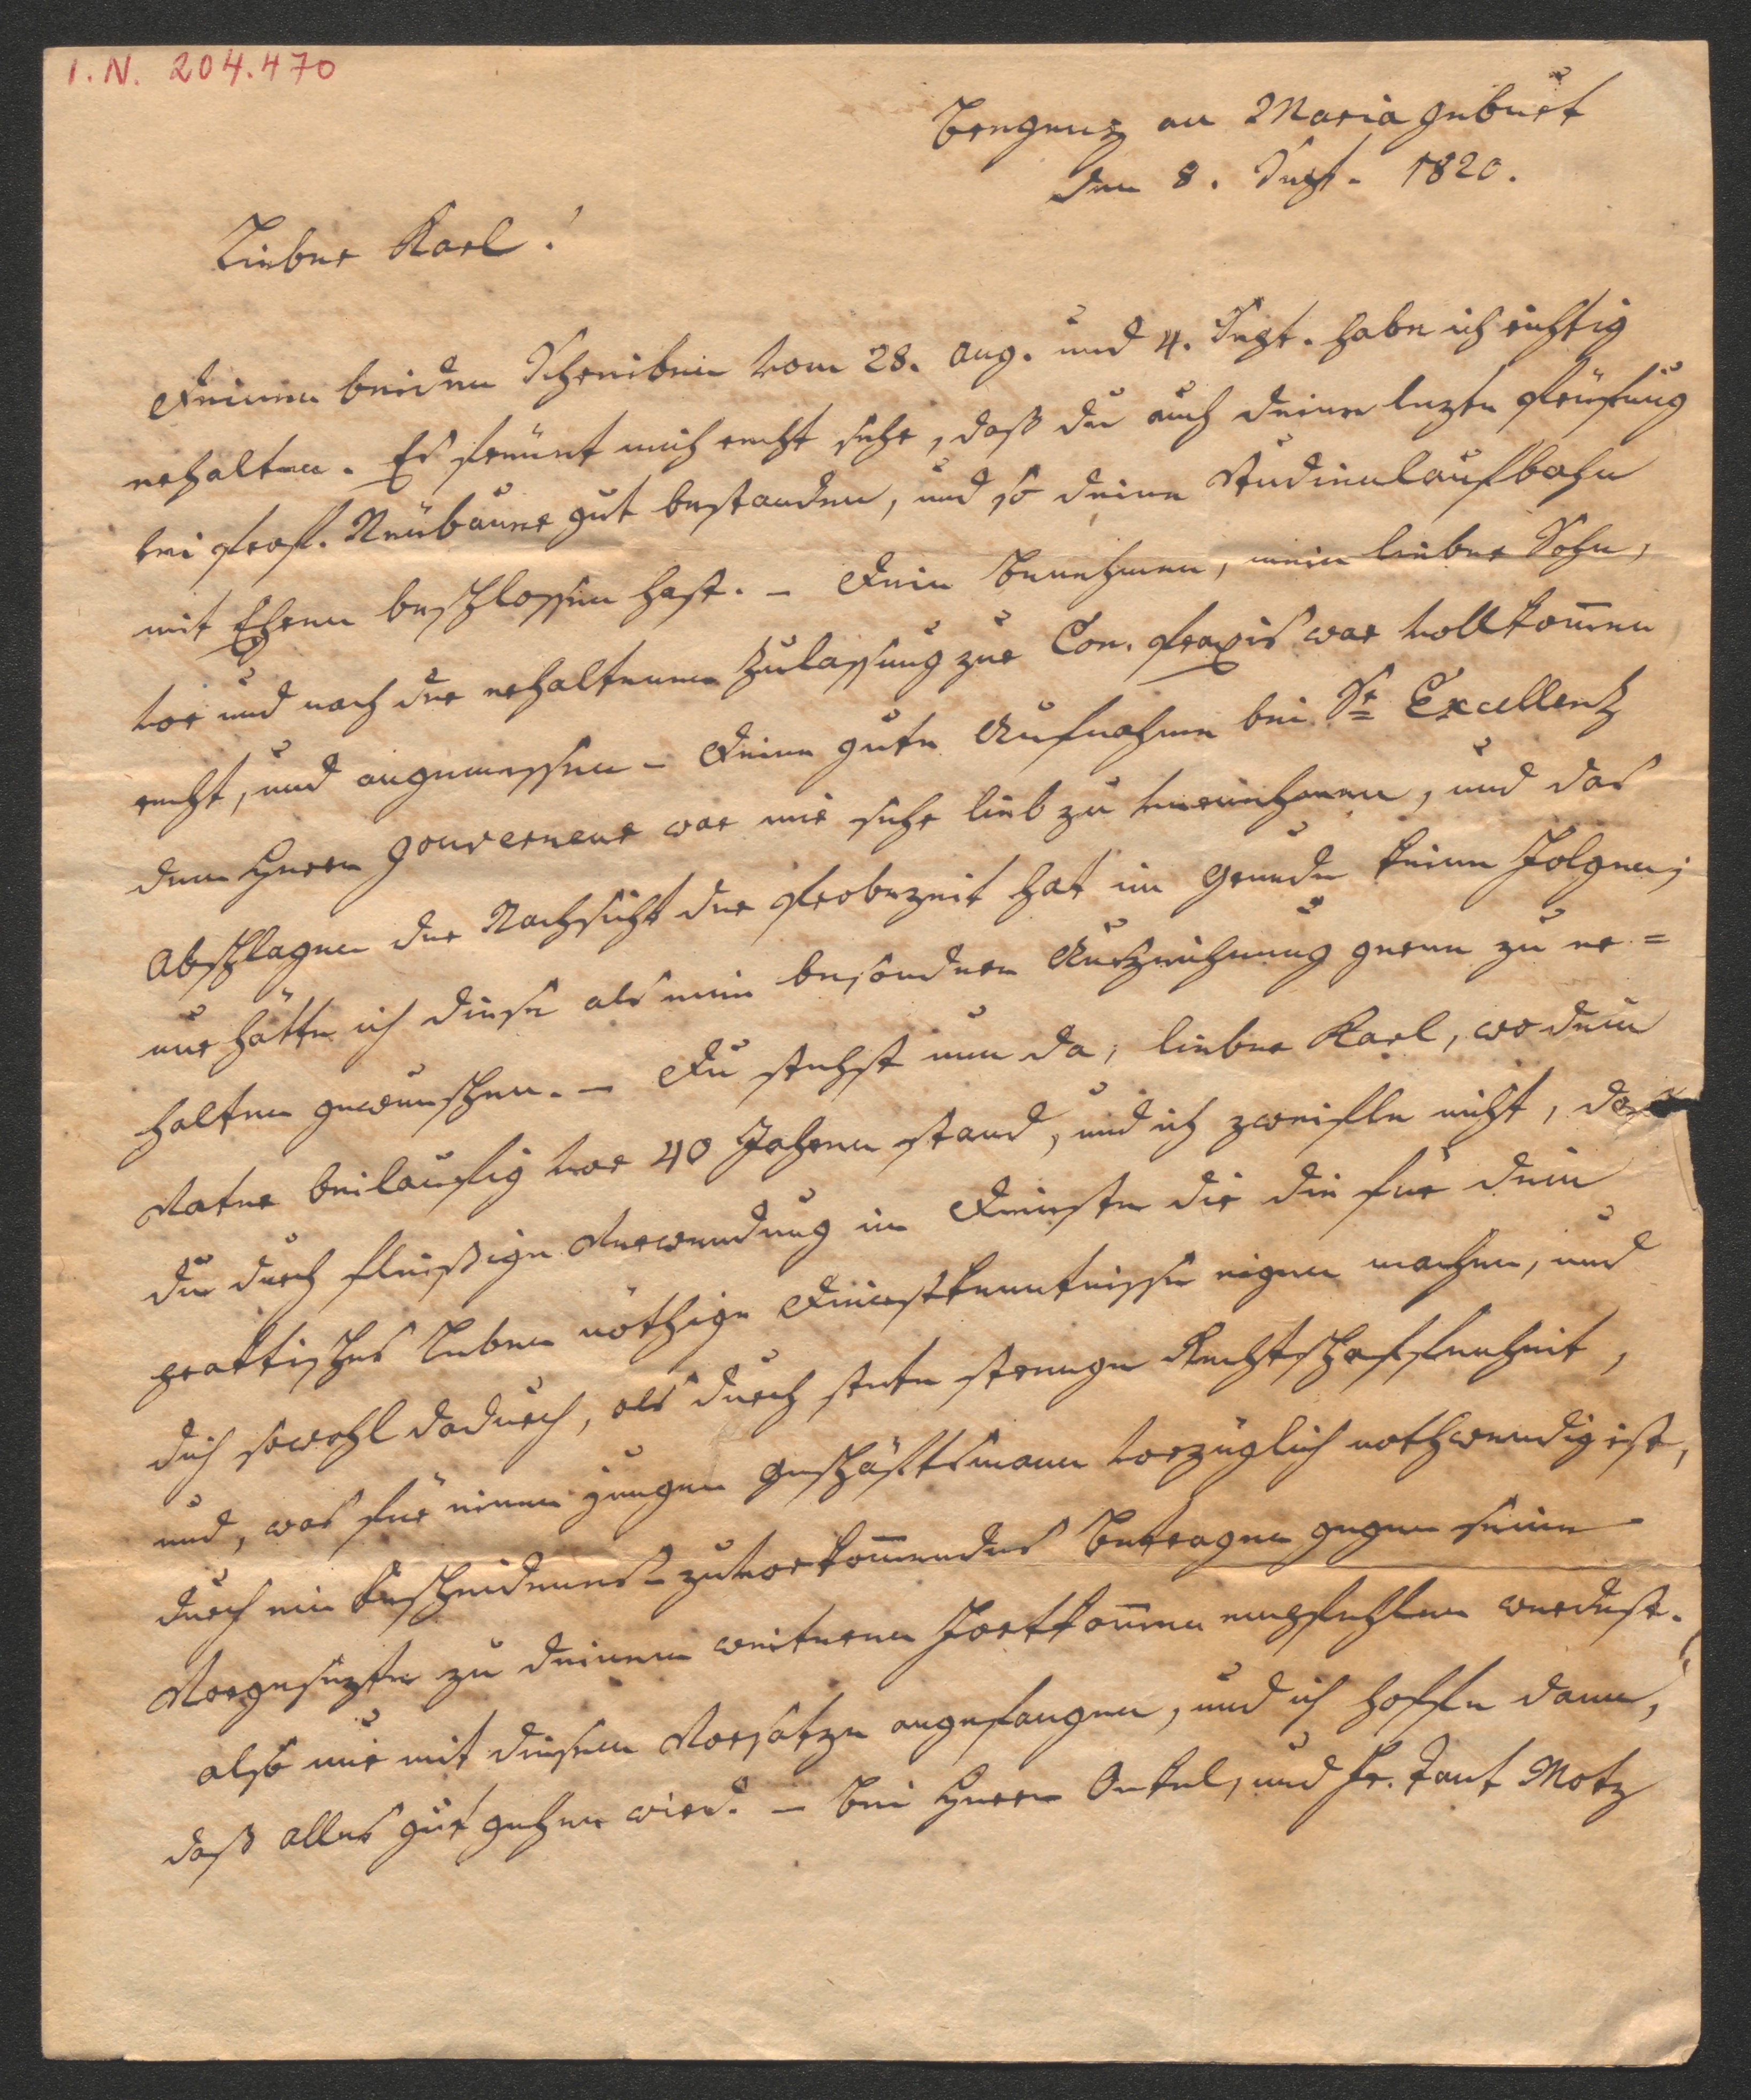 I.N. 204.470
Bregenz an Maria Geburt
den 8. Sept. 1820.
Lieber Karl!
Deinen beiden Schreiben vom 28. Aug. und 4. Sept. habe ich richtig
erhalten. Es freuet mich recht sehr, daß du auch deine lezte Prüfung
bei Prof. Neubauer gut bestanden, und so deine Studienlaufbahn
mit Ehren beschlossen hast. – Dein Benehmen, mein lieber Sohn,
vor und nach der erhaltenen Zulassung zur Con. Praxis war vollkom̅en
recht, und angemessen – Deine gute Aufnahme bei Sr Excellenz
dem Herrn Gouverneur war mir sehr lieb zu vernehmen, und das
Abschlagen der Nachsicht der Probezeit hat im Grunde keine Folgen;
nur hätte ich diese als eine besondere Auszeichnung gerne zu er=
halten gewunschen. – Du stehst nun da, lieber Karl, wo dein
Vater beiläufig vor 40 Jahren stand, und ich zweifle nicht, daß
du durch fleißige Verwendung im Dienste dir die für dein
praktisches Leben nöthige Dienstkenntnisse eigen machen, und
dich sowohl dadurch, als durch stete strenge Rechtschaffenheit,
und, was für einen jungen Geschäftsmann vorzüglich nothwendig ist,
durch ein bescheidenes – zuvorkom̅endes Betragen gegen seine
Vorgesezte zu deinem weiteren Fortkom̅en empfehlen werdest.
Also nur mit diesem Vorsatze angefangen, und ich hoffe dann,
daß alles gut gehen wird. – Bei Herrn Onkel, und Fr. Tant Motz